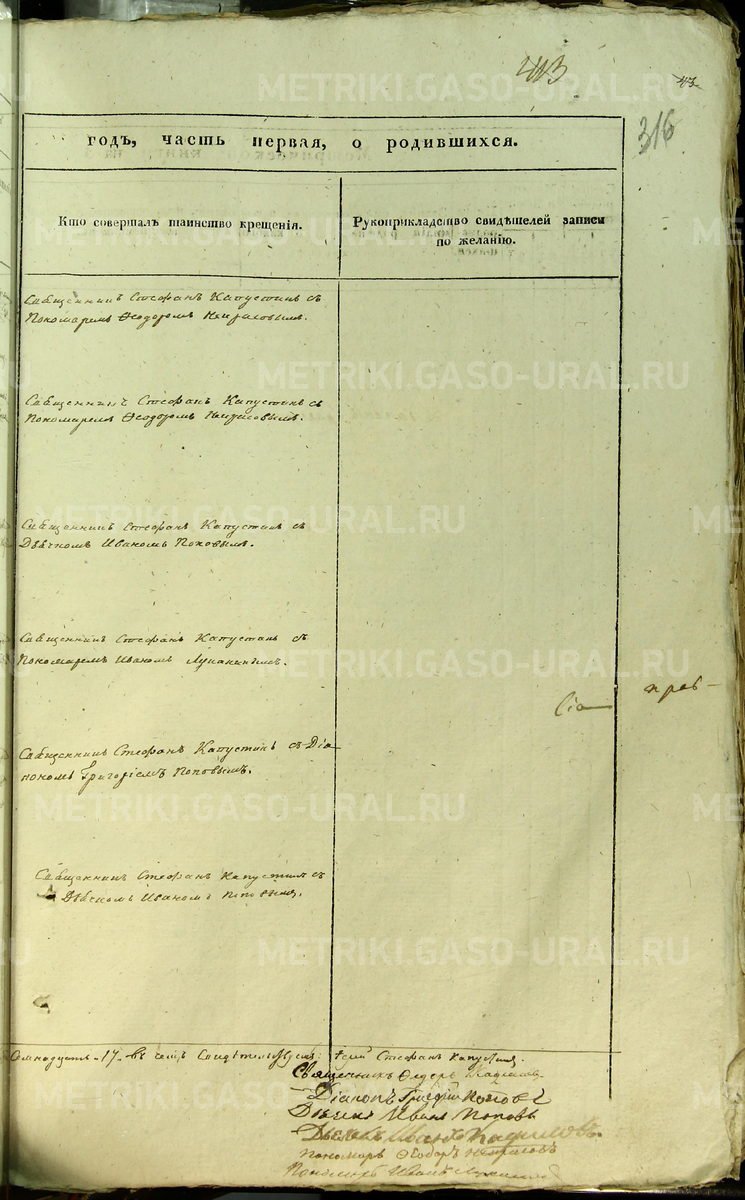 413
43
316
годъ, часть первая, о родившихся.
Кто совершалъ таинство крещенія.
Рукоприкладство свидѣтелей записи
по желанію.
Священникъ Стефанъ Капустинъ съ
Пономаремъ Ѳеодоромъ Некрасовымъ.
Священникъ Стефанъ Капустинъ съ
Пономаремъ Ѳеодоромъ Некрасовымъ.
Священникъ Стефанъ Капустинъ съ
Дьячкомъ Иваномъ Поповымъ.
Священникъ Стефанъ Капустинъ съ
Пономаремъ Иваномъ
Сіа
Священникъ Стефанъ Капустинъ съ Діа
кономъ Григоріемъ Поповымъ.
Священникъ Стефанъ Капустинъ съ
Дьячкомъ Иваномъ Поповымъ.
семнадцать 17. въ чемъ Стефанъ Капустинъ.
Священникъ Ѳедоръ
Діаконъ Григорій Поповъ
Дьячекъ Иванъ Поповъ
Дьячекъ Иванъ
пономарь Ѳеодоръ Некрасовъ
Пономарь Иванъ
METRIKI.GASO-URAL.RU